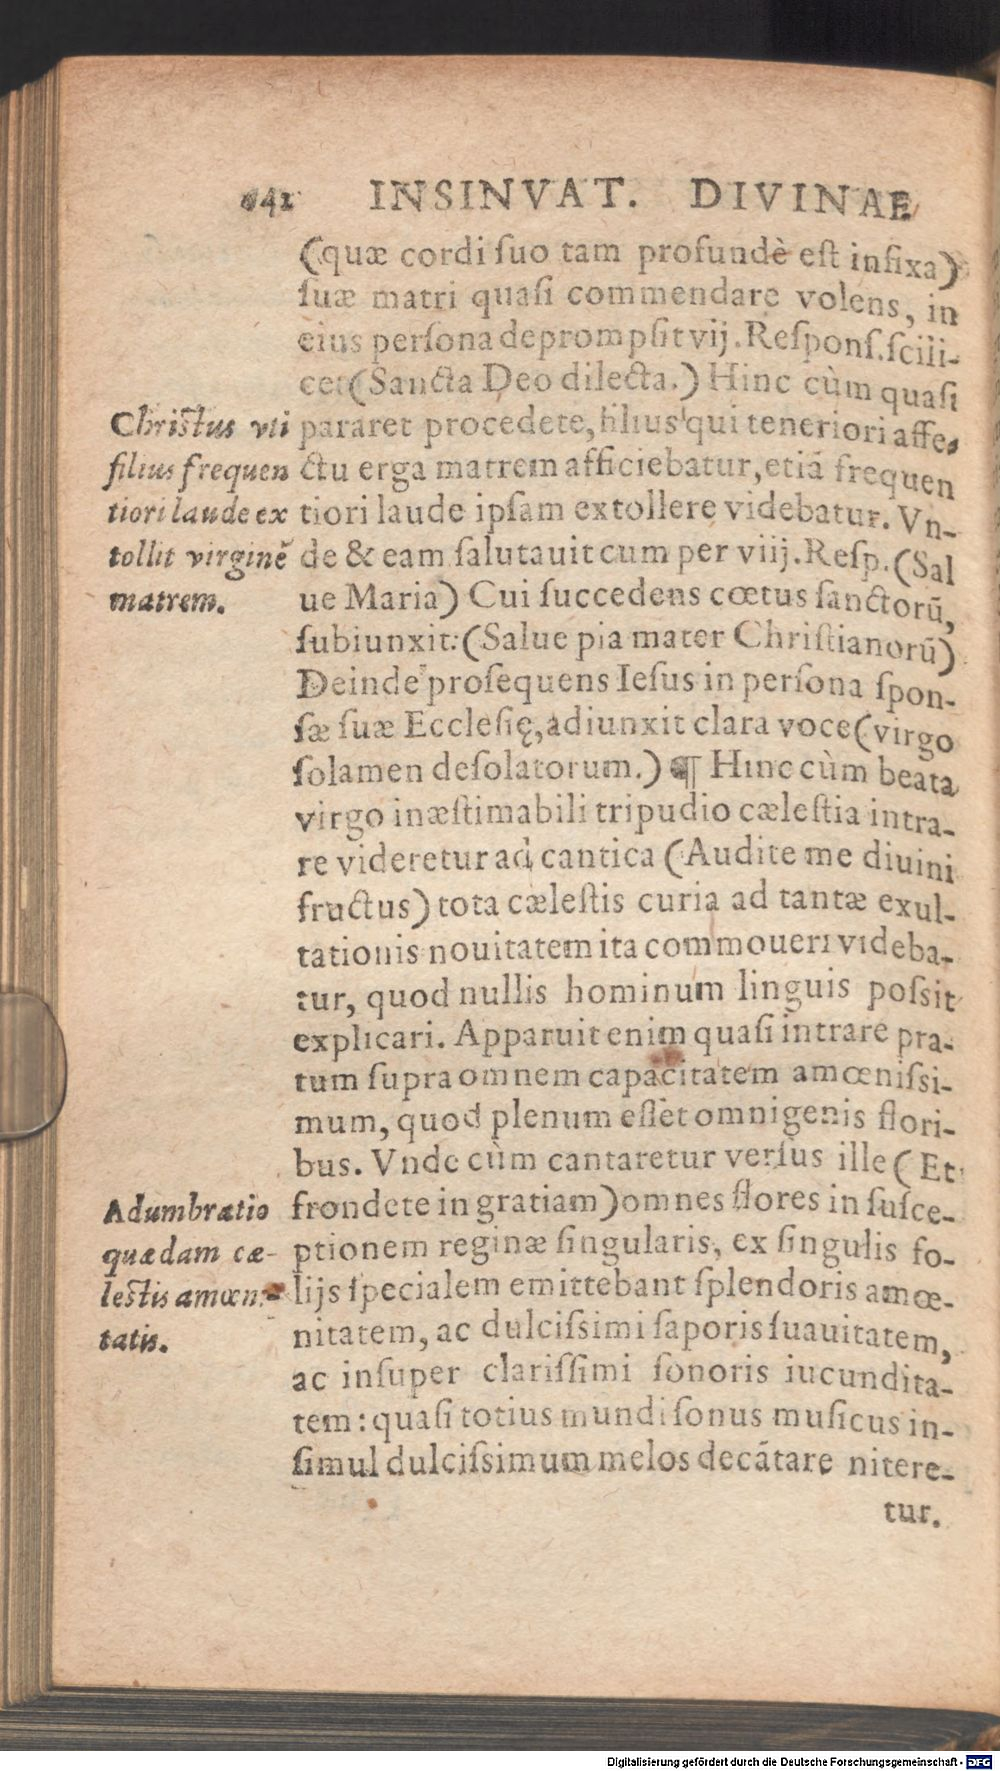 INSINVAT. DIVINAE
(quæ cordi ſuo tam profundè eſt infixa)
ſuæ matri quaſi commendare volens, in
eius perſona deprompſit vij. Reſponſ. ſcili-
cet (Sancta Deo dilecta.) Hinc cùm quaſi
pararet procedete, filius qui teneriori affe-
ctu erga matrem afficiebatur, etiã frequen
tiori laude ipſam extollere videbatur. Vn-
de & eam ſalutauit cum per viij. Reſp. (Sal
ue Maria) Cui ſuccedens cœtus ſanctorũ,
ſubiunxit: (Salue pia mater Chriſtianorũ)
Deinde proſequens Ieſus in perſona ſpon-
ſæ ſuæ Eccleſię, adiunxit clara voce (virgo
ſolamen deſolatorum.) ¶ Hinc cùm beata
virgo inæſtimabili tripudio cæleſtia intra-
re videretur ad cantica (Audite me diuini
fructus) tota cæleſtis curia ad tantæ exul-
tationis nouitatem ita commoueri videba-
tur, quod nullis hominum linguis poſsit
explicari. Apparuit enim quaſi intrare pra-
tum ſupra omnem capacitatem amœniſsi-
mum, quod plenum eſſet omnigenis flori-
bus. Vnde cùm cantaretur verſus ille (Et
frondete in gratiam) omnes flores in ſuſce-
ptionem reginæ ſingularis, ex ſingulis fo-
lijs ſpecialem emittebant ſplendoris amœ-
nitatem, ac dulciſsimi ſaporis ſuauitatem,
ac inſuper clariſsimi ſonoris iucundita-
tem: quaſi totius mundi ſonus muſicus in-
ſimul dulciſsimum melos decãtare nitere-
tur.
Chriſtus vti
filius frequen
tiori laude ex
tollit virginē
matrem.
Adumbratio
quædam cæ-
leſtis amœni-
tatis.
Digitalisierung gefördert durch die Deutsche Forschungsgemeinschaft - DFG